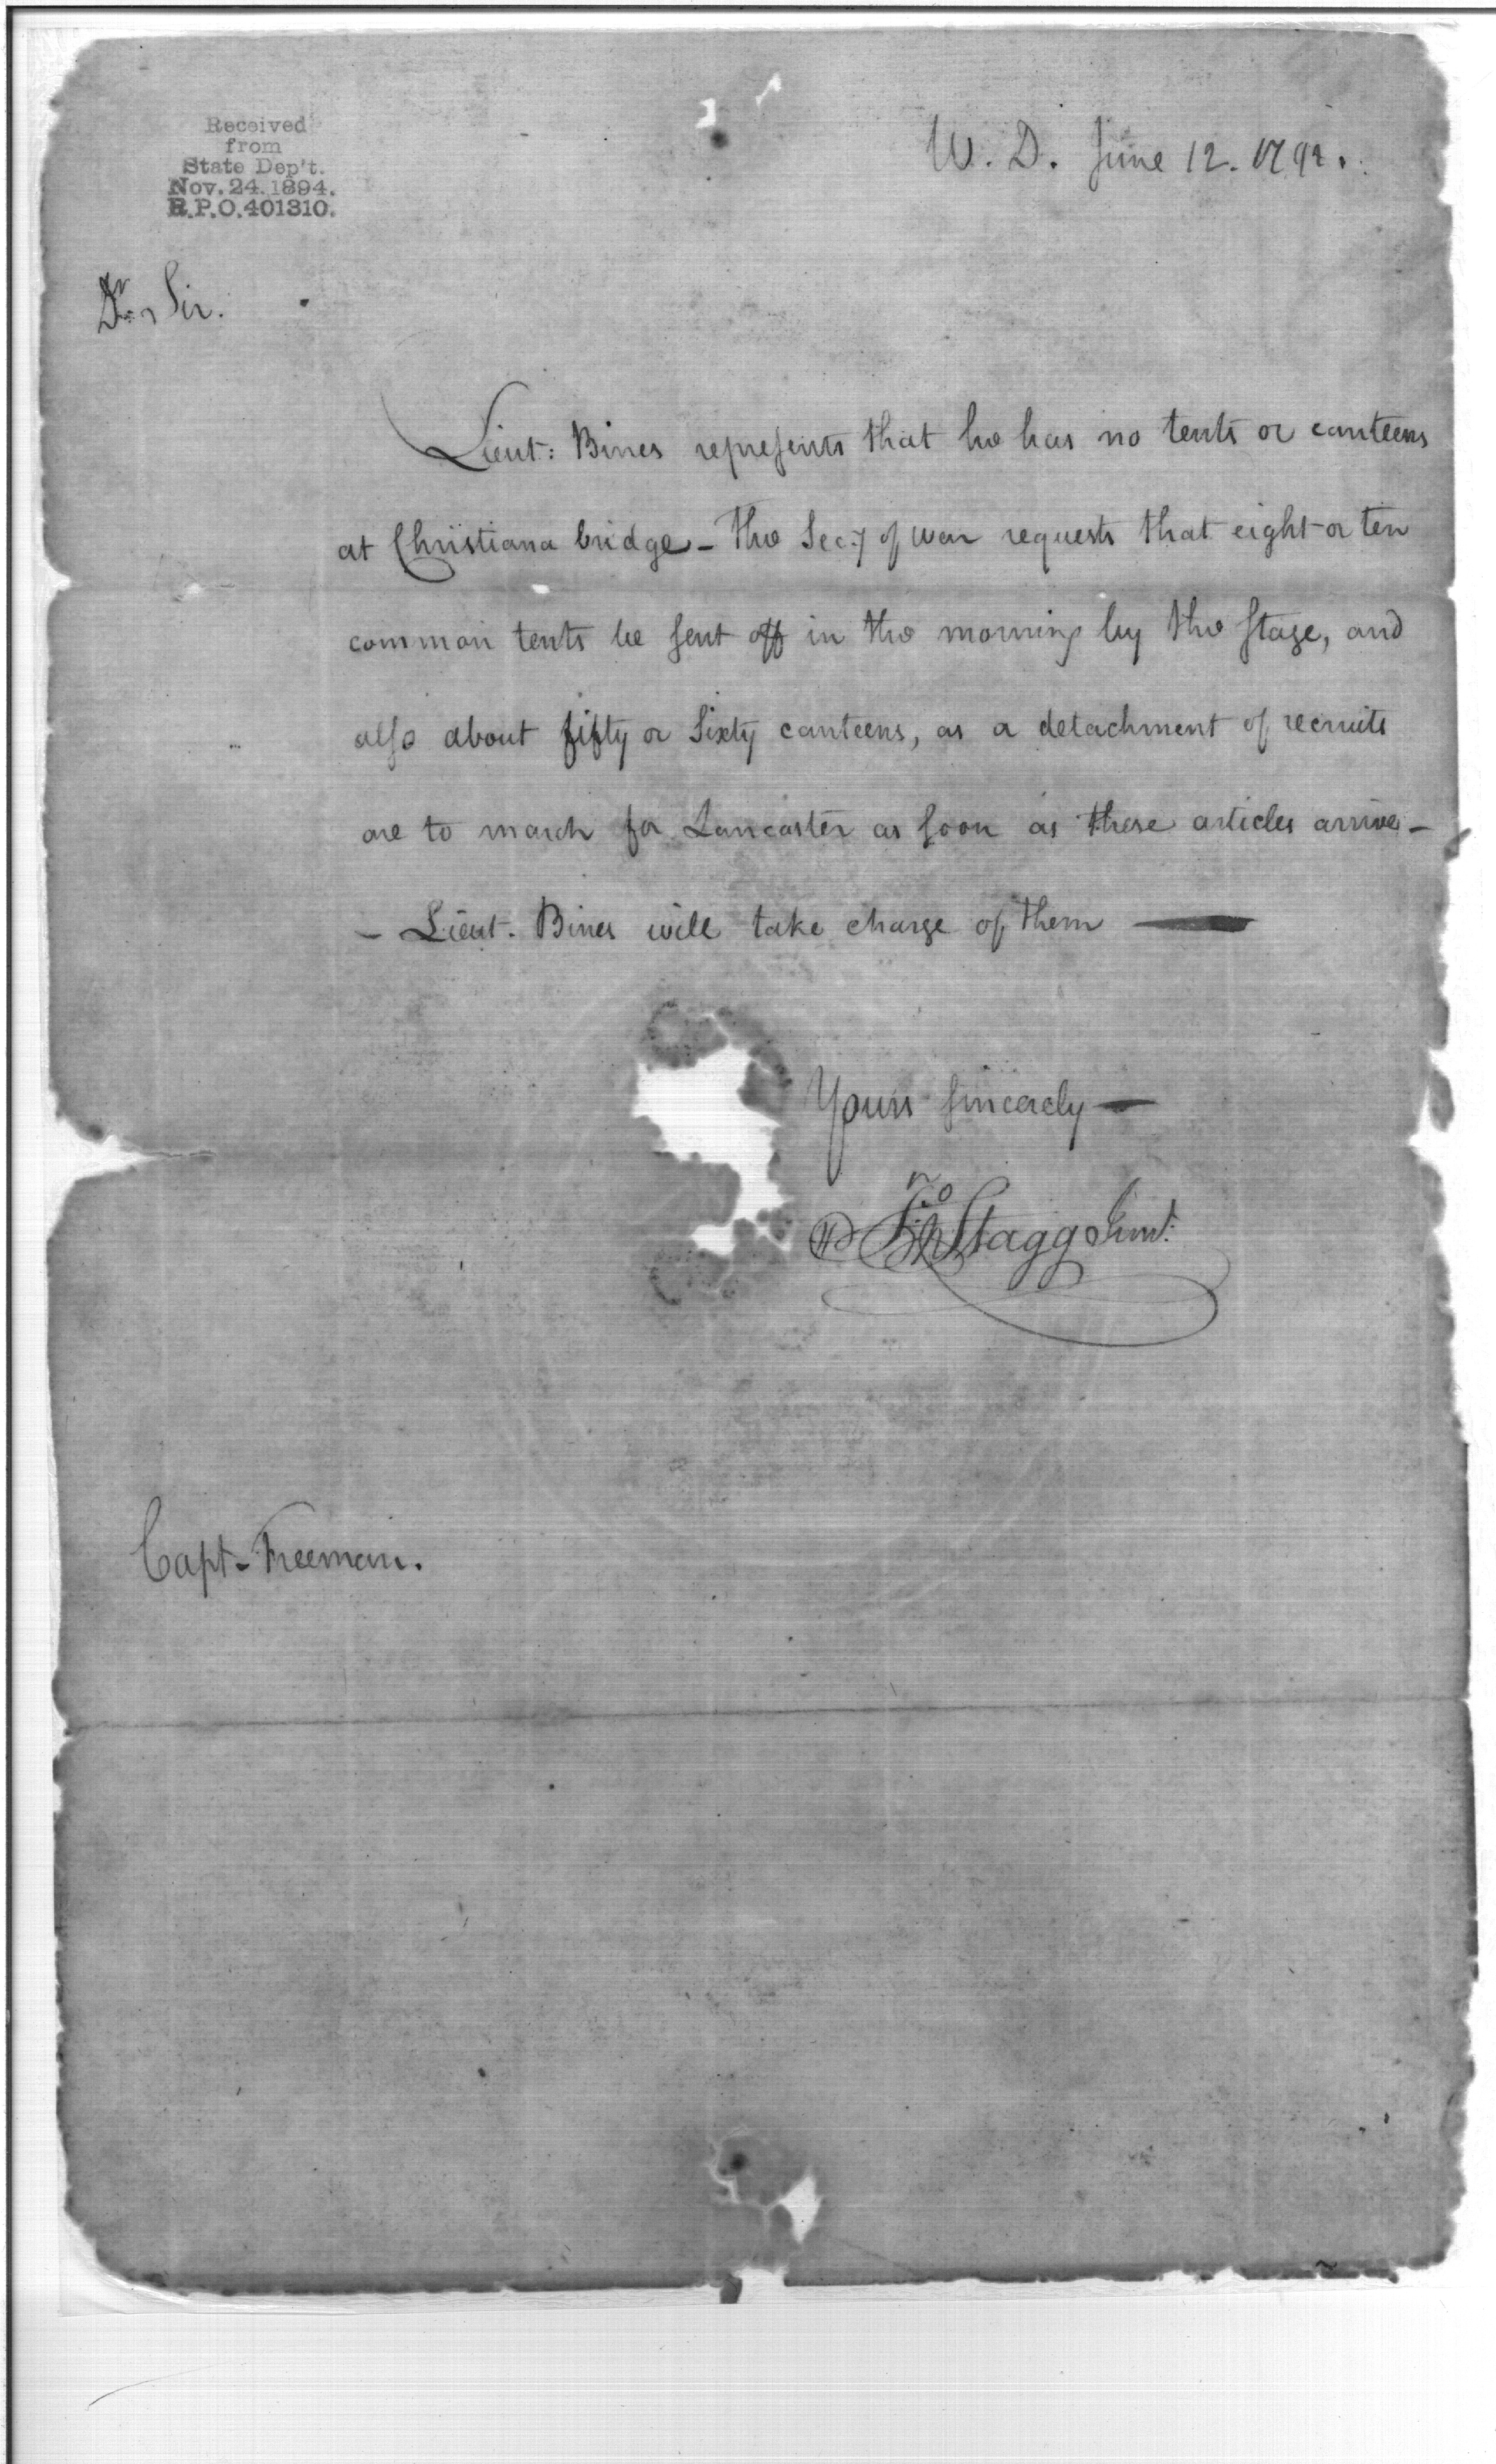 Received
from
State Dep't.
Nov. 24. 1894.
R.P.O. 401310.
W. D. June 12. 1792.
Dr. Sir.
Lieut: Bines represents that he has no tents or canteens
at Christiana bridge - The Secy of War requests that eight or ten
common tents be sent off in the morning by the stage, and
also about fifty or sixty canteens, as a detachment of recruits
are to march for Lancaster as soon as these articles arrive -
- Lieut. Bines will take charge of them —
Yours sincerely —
Jno Stagg Junr.
Capt - Freeman.